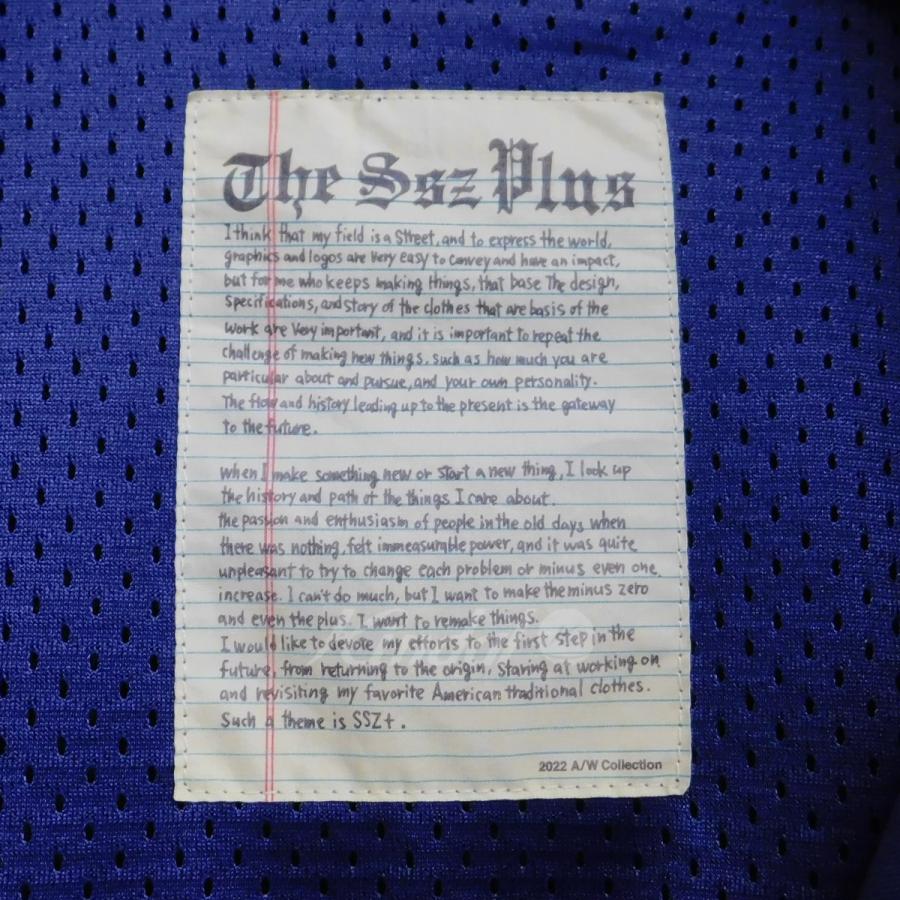 The Ssz Plus
I think that my field is a Street, and to express the world,
graphics and logos are very easy to convey and have an impact,
but for me who keeps making things, that base The design,
specifications, and story of the clothes that are basis of the
work are Very important, and it is important to repeat the
challenge of making new things, such as how much you are
particular about and pursue, and your own personality.
The flow and history leading up to the present is the gateway
to the future.
when I make something new or start a new thing, I look up
the history and path of the things I care about.
the passion and enthusiasm of people in the old days when
there was nothing, felt immeasurable power, and it was quite
unpleasant to try to change each problem or minus even one,
increase. I can't do much, but I want to make the minus zero
and even the plus. I want to remake things.
I would like to devote my efforts to the first step in the
future, from returning to the origin, staring at working on
and revisiting my favorite American traditional clothes.
Such a theme is SSZ+.
2022 A/W Collection